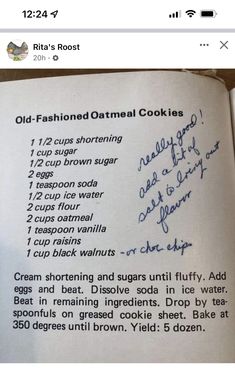 12:24
Rita's Roost
20h
Old-Fashioned Oatmeal Cookies
1 1/2 cups shortening
1 cup sugar
1/2 cup brown sugar
2 eggs
1 teaspoon soda
1/2 cup ice water
2 cups flour
2 cups oatmeal
1 teaspoon vanilla
1 cup raisins
1 cup black walnuts - or choc chips
really good!
add a bit of
salt to bring out
flavor
Cream shortening and sugars until fluffy. Add
eggs and beat. Dissolve soda in ice water.
Beat in remaining ingredients. Drop by tea-
spoonfuls on greased cookie sheet. Bake at
350 degrees until brown. Yield: 5 dozen.